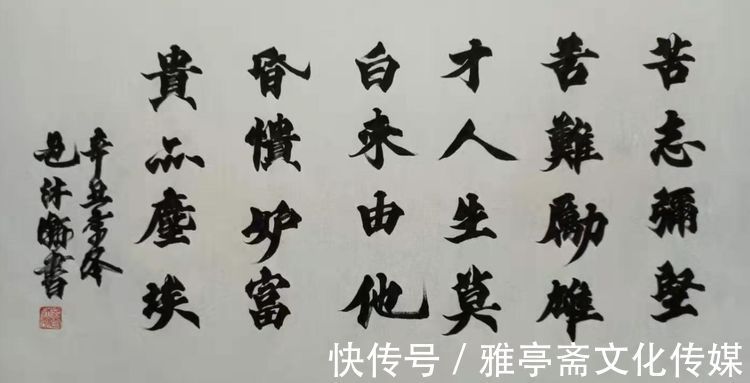 苦志彌堅
苦難勵雄
才人生莫
白來由他
昏憒妒富
貴亦塵埃
辛丑
書
快传号 / 雅亭斋文化传媒